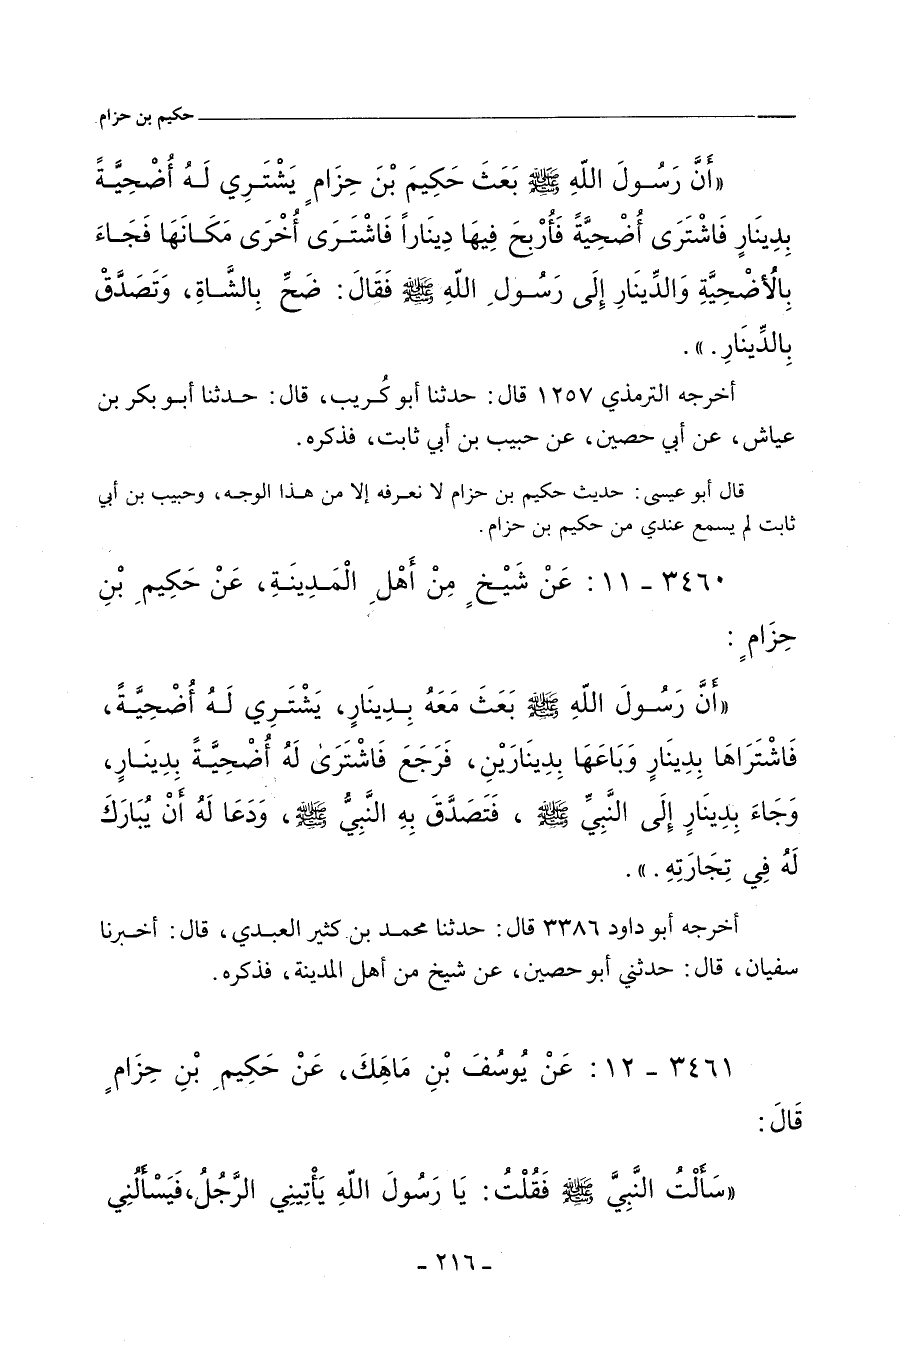 حكيم بن حزام
«أَنَّ رَسُولَ اللّهِ ﷺ بَعَثَ حَكِيمَ بْنَ حِزَامٍ يَشْتَرِي لَهُ أُضْحِيَّةً
بِدِينَارٍ فَاشْتَرَى أُضْحِيَّةً فَأُرْبِحَ فِيهَا دِينَاراً فَاشْتَرَى أُخْرَى مَكَانَهَا فَجَاءَ
بِالْأُضْحِيَّةِ وَالدِّينَارِ إِلَى رَسُولِ اللّهِ ﷺ فَقَالَ: ضَحِّ بِالشَّاةِ، وَتَصَدَّقْ
بِالدِّينَارِ.».
أخرجه الترمذي ١٢٥٧ قال: حدثنا أبو كُريب، قال: حدثنا أبو بكر بن
عياش، عن أبي حصين، عن حبيب بن أبي ثابت، فذكره.
قال أبو عيسى: حديث حكيم بن حزام لا نعرفه إلا من هذا الوجه، وحبيب بن أبي
ثابت لم يسمع عندي من حكيم بن حزام.
٣٤٦٠ - ١١: عَنْ شَيْخٍ مِنْ أَهْلِ الْمَدِينَةِ، عَنْ حَكِيمِ بْنِ
حِزَامٍ:
«أَنَّ رَسُولَ اللّهِ ﷺ بَعَثَ مَعَهُ بِدِينَارٍ، يَشْتَرِي لَهُ أُضْحِيَّةً،
فَاشْتَرَاهَا بِدِينَارٍ وَبَاعَهَا بِدِينَارَيْنِ، فَرَجَعَ فَاشْتَرَىٰ لَهُ أُضْحِيَّةً بِدِينَارٍ،
وَجَاءَ بِدِينَارٍ إِلَى النَّبِيِّ ﷺ، فَتَصَدَّقَ بِهِ النَّبِيُّ ﷺ، وَدَعَا لَهُ أَنْ يُبَارَكَ
لَهُ فِي تِجَارَتِهِ.».
أخرجه أبو داود ٣٣٨٦ قال: حدثنا محمد بن كثير العبدي، قال: أخبرنا
سفيان، قال: حدثني أبو حصين، عن شيخ من أهل المدينة، فذكره.
٣٤٦١ - ١٢: عَنْ يُوسُفَ بْنِ مَاهَكَ، عَنْ حَكِيمِ بْنِ حِزَامٍ
قَالَ:
«سَأَلْتُ النَّبِيَّ ﷺ فَقُلْتُ: يَا رَسُولَ اللّهِ يَأْتِينِي الرَّجُلُ،فَيَسْأَلُنِي
- ٢١٦ -